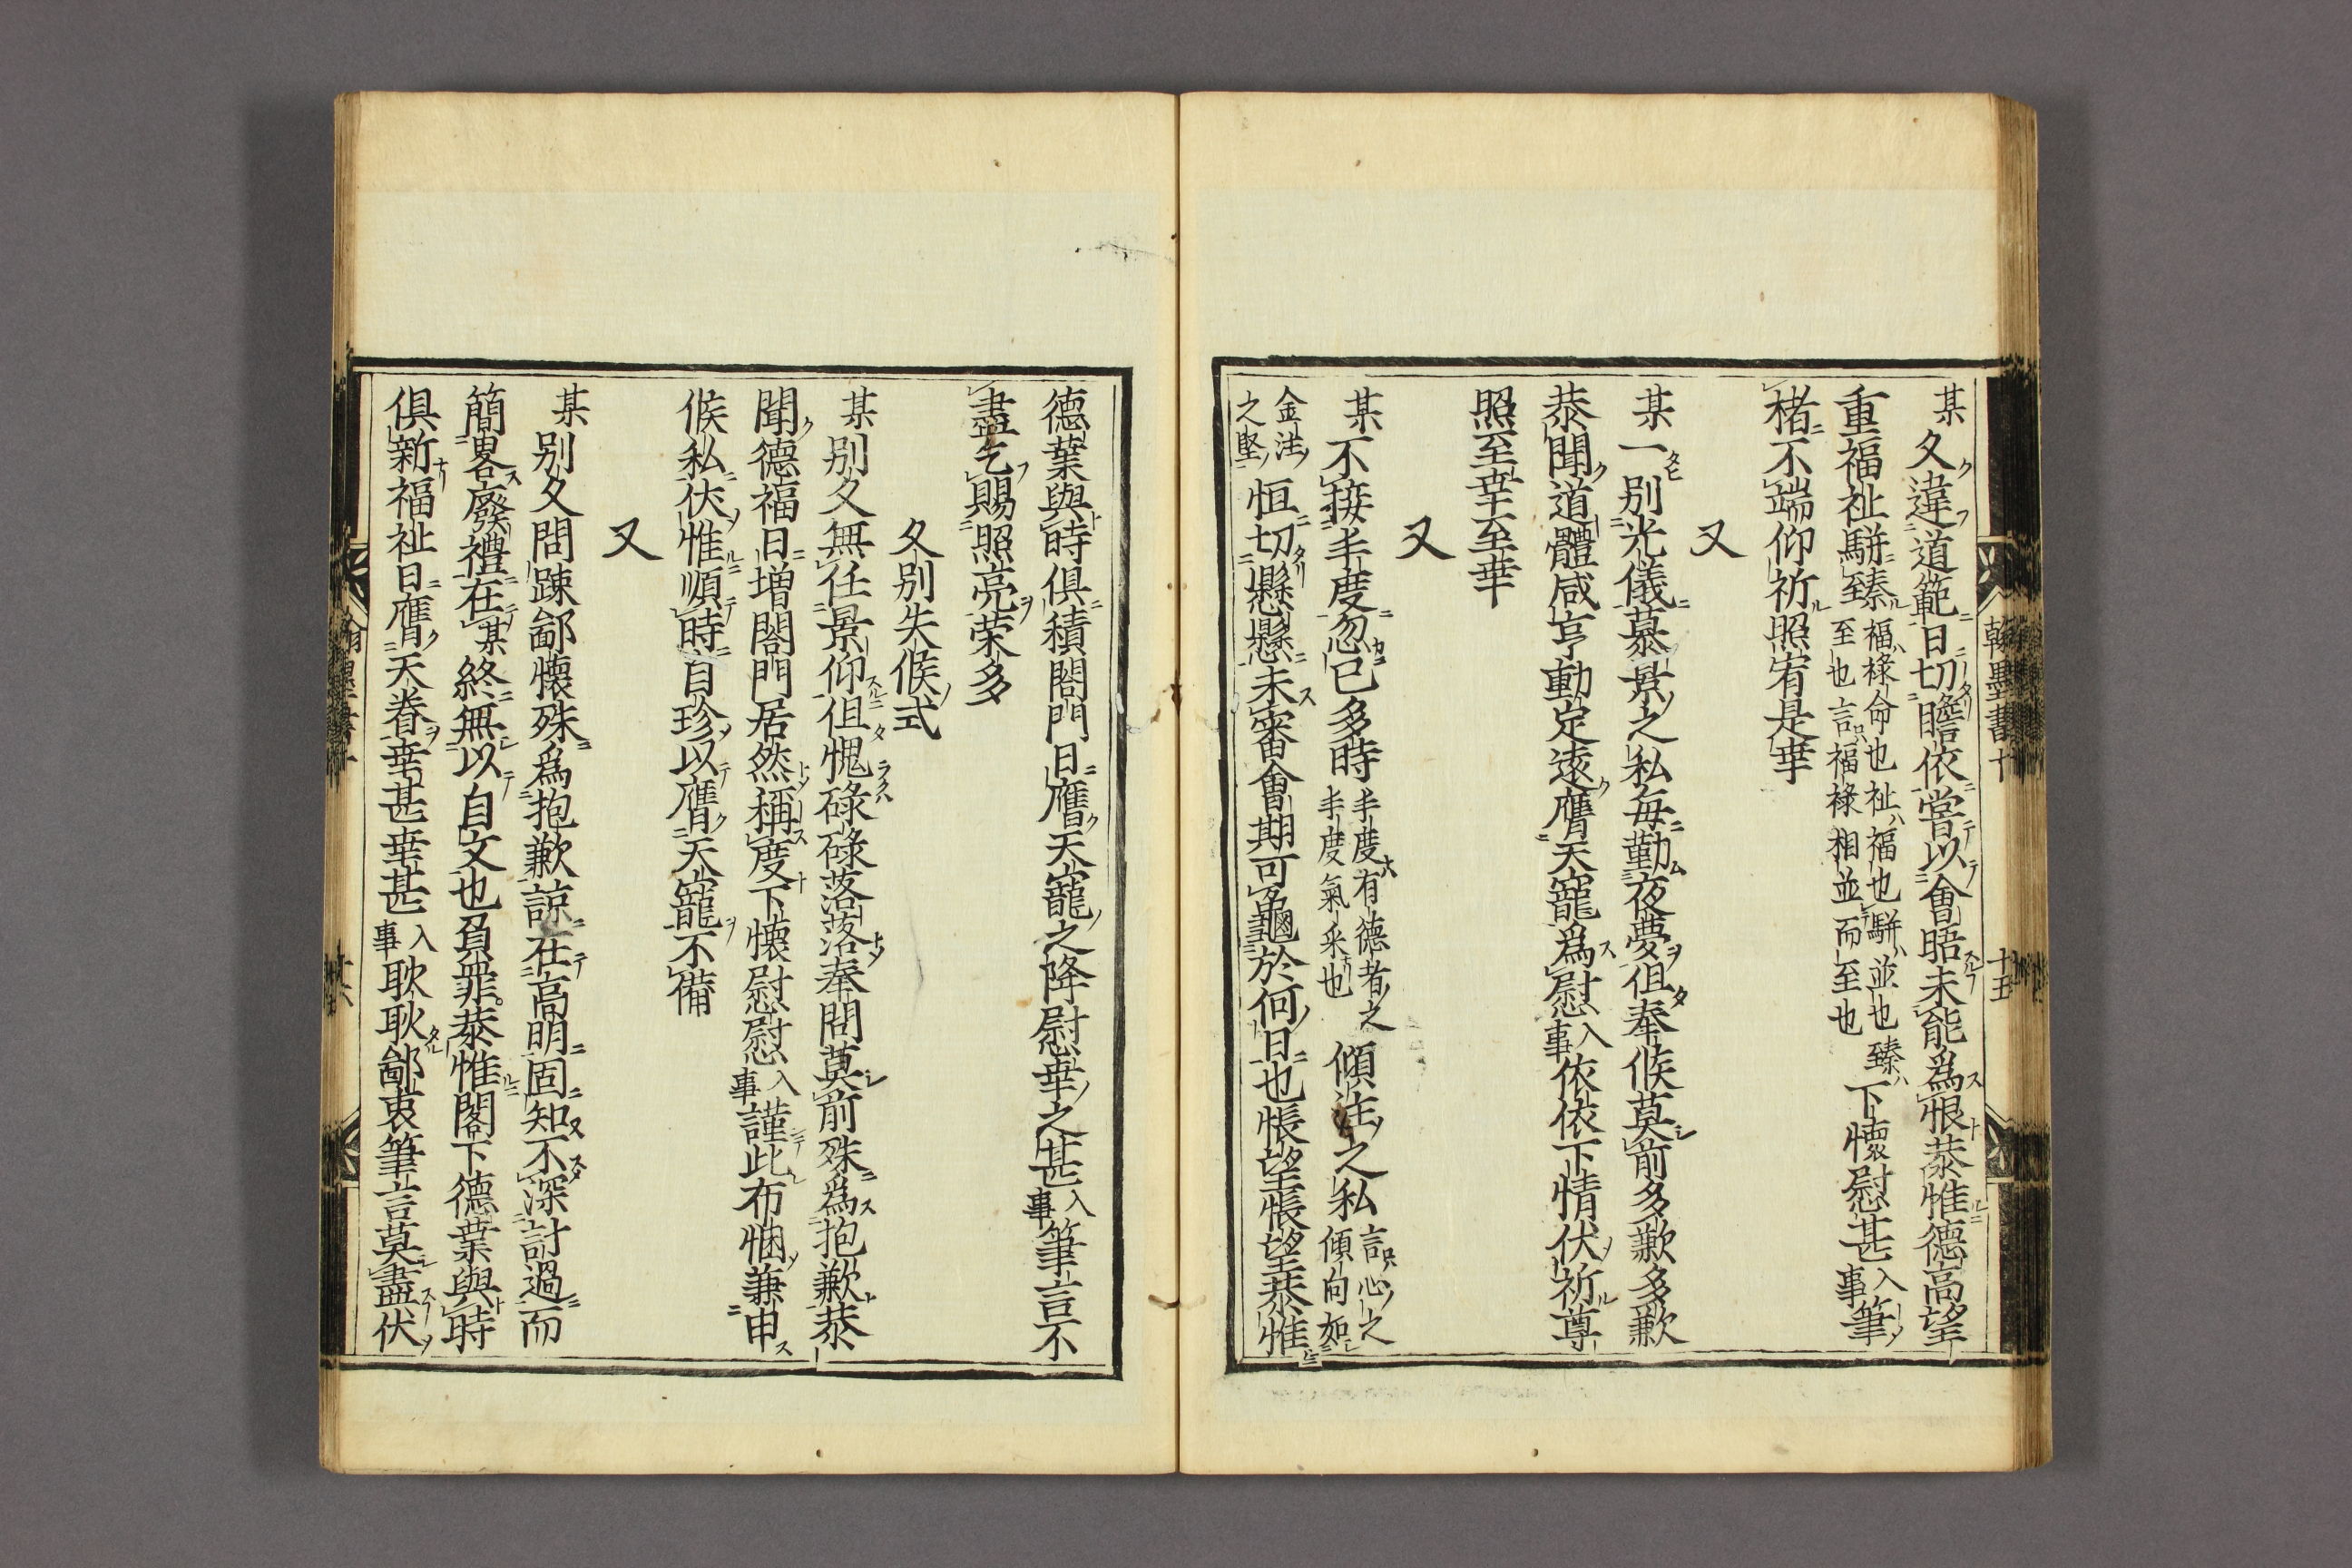 某久違道範日切瞻依嘗以會晤未能爲恨恭惟德高望
重福祉駢臻福祿命也祉福也駢並也臻至也言福祿相並而至也下懷慰甚入事筆
楮不端仰祈照宥是幸
又
某一別光儀慕景之私每勤夜夢但奉候莫前多歉多歉
恭聞道體咸亨動定遠膺天寵爲慰入事依依下情伏祈尊
照至幸至幸
又
某不接丰度忽已多時丰度有德者之丰度氣采也傾注之私言心之傾向如
金注之堅恒切懸懸未審會期可龜於何日也悵望悵望恭惟
翰墨書十
十五
德業與時俱積閤門日膺天寵之降慰幸之甚入事筆言不
盡乞賜照亮荣多
久別失候式
某別久無任景仰但愧碌碌落落奉問莫前殊爲抱歉恭
聞德福日增閤門居然稱度下懷慰慰入事謹此布悃兼申
候私伏惟順時自珍以膺天寵不備
又
某別久問踈鄙懷殊爲抱歉諒在高明固知不深討過而
簡畧廢禮在某終無以自文也負罪恭惟閣下德業與時
俱新福祉日膺天眷幸甚幸甚入事耿耿鄙衷筆言莫盡伏